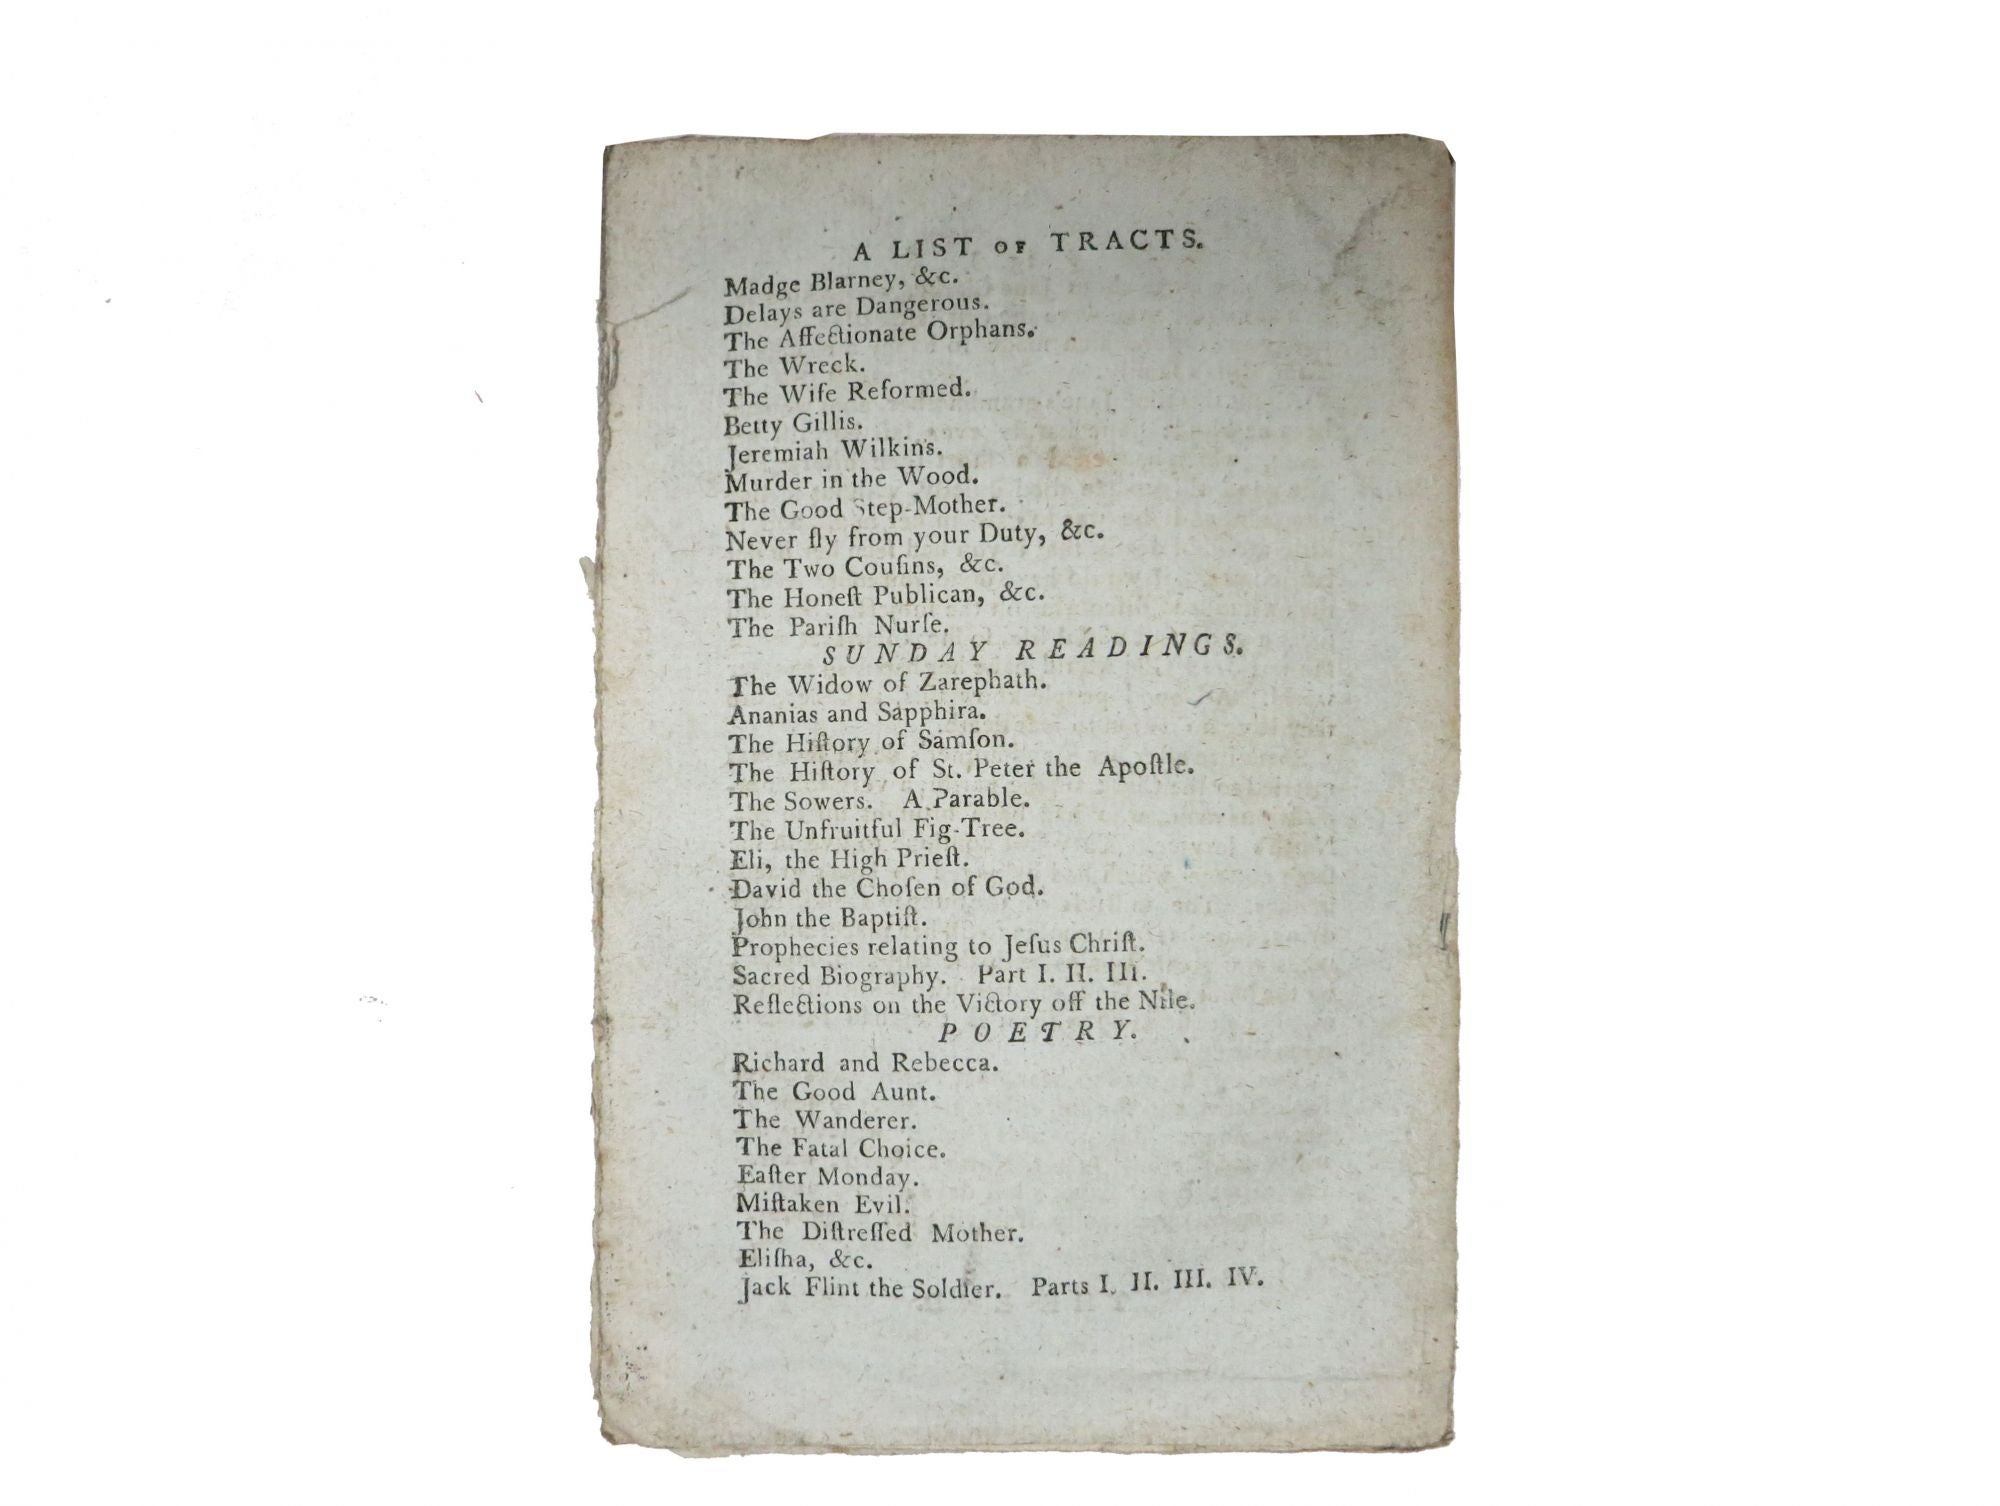 A LIST OF TRACTS.
Madge Blarney, &c.
Delays are Dangerous.
The Affectionate Orphans.
The Wreck.
The Wife Reformed.
Betty Gillis.
Jeremiah Wilkins.
Murder in the Wood.
The Good Step-Mother.
Never fly from your Duty, &c.
The Two Couſins, &c.
The Honeſt Publican, &c.
The Pariſh Nurſe.
SUNDAY READINGS.
The Widow of Zarephath.
Ananias and Sapphira.
The Hiſtory of Samſon.
The Hiſtory of St. Peter the Apoſtle.
The Sowers. A Parable.
The Unfruitful Fig-Tree.
Eli, the High Prieſt.
David the Choſen of God.
John the Baptiſt.
Prophecies relating to Jeſus Chriſt.
Sacred Biography. Part I. II. III.
Reflections on the Victory off the Nile.
POETRY.
Richard and Rebecca.
The Good Aunt.
The Wanderer.
The Fatal Choice.
Eaſter Monday.
Miſtaken Evil.
The Diſtreſſed Mother.
Eliſha, &c.
Jack Flint the Soldier. Parts I. II. III. IV.